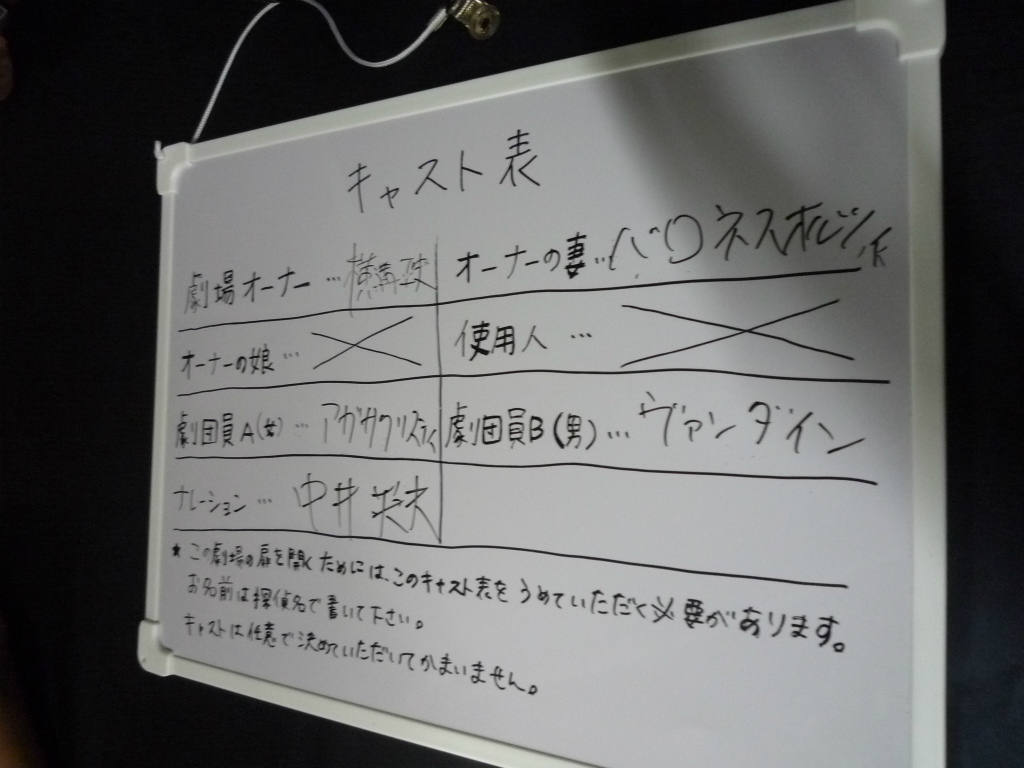 キャスト表
劇場オーナー … 横溝正史
オーナーの妻… バロネスオルツィ
オーナーの娘 …
使用人 …
劇団員A(女) … アガサクリスティ
劇団員B(男) … ヴァンダイン
ナレーション … 中井英夫
★ この劇場の扉を開くためには、このキャスト表をうめていただく必要があります。
お名前は探偵名で書いて下さい。
キャストは任意で決めていただいてかまいません。